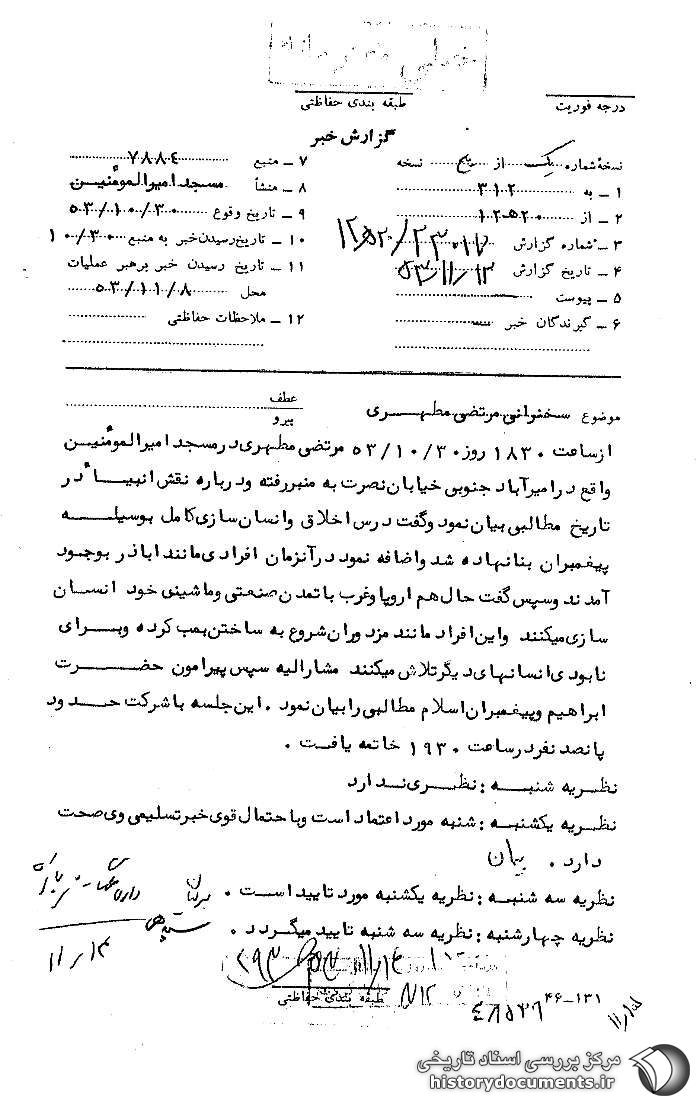 خیلی محرمانه
درجه فوریت
طبقه بندی حفاظتی
گزارش خبر
نسخه شماره یک از پنج نسخه
۱ ـ به ۳۱۲
۲ ـ از ۲۰ھ۱۲
۳ ـ شماره گزارش
۴ ـ تاریخ گزارش ۵۳/۱۱/۱۳
۵ ـ پیوست ـــ
۶ ـ گیرندگان خبر ـــ
۷ ـ منبع ۷۸۸۴
۸ ـ منشأ مسجد امیرالمومنین
۹ ـ تاریخ وقوع ۵۳/۱۰/۳۰
۱۰ ـ تاریخ رسیدن خبر به منبع ۱۰/۳۰
۱۱ ـ تاریخ رسیدن خبر برهبر عملیات
محل ۵۳/۱۱/۸
۱۲ ـ ملاحظات حفاظتی
موضوع سخنرانی مرتضی مطهری
عطف
پیرو
ازساعت ۱۸۳۰ روز ۵۳/۱۰/۳۰ مرتضی مطهری درمسجد امیرالمومنین
واقع درامیرآباد جنوبی خیابان نصرت به منبررفته ودرباره نقش انبیاء در
تاریخ مطالبی بیان نمود وگفت درس اخلاق وانسان سازی کامل بوسیله
پیغمبران بنانهاده شد واضافه نمود درآنزمان افرادی مانند اباذر بوجود
آمدند وسپس گفت حال هم اروپا وغرب باتمدن صنعتی وماشینی خود انسان
سازی میکنند واین افراد مانند مزدوران شروع به ساختن بمب کرده وبرای
نابودی انسانهای دیگرتلاش میکنند مشارالیه سپس پیرامون حضرت
ابراهیم وپیغمبران اسلام مطالبی رابیان نمود . این جلسه باشرکت حدود
پانصد نفردرساعت ۱۹۳۰ خاتمه یافت .
نظریه شنبه : نظری ندارد
نظریه یکشنبه : شنبه مورداعتماد است وبا احتمال قوی خبرتسلیمی وی صحت
دارد . پیمان
نظریه سه شنبه : نظریه یکشنبه مورد تایید است .
نظریه چهارشنبه : نظریه سه شنبه تایید میگردد .
۱۱/۱۴
طبقه بندی حفاظتی
۴۶-۱۳۱
مرکز بررسی اسناد تاریخی
historydocuments.ir